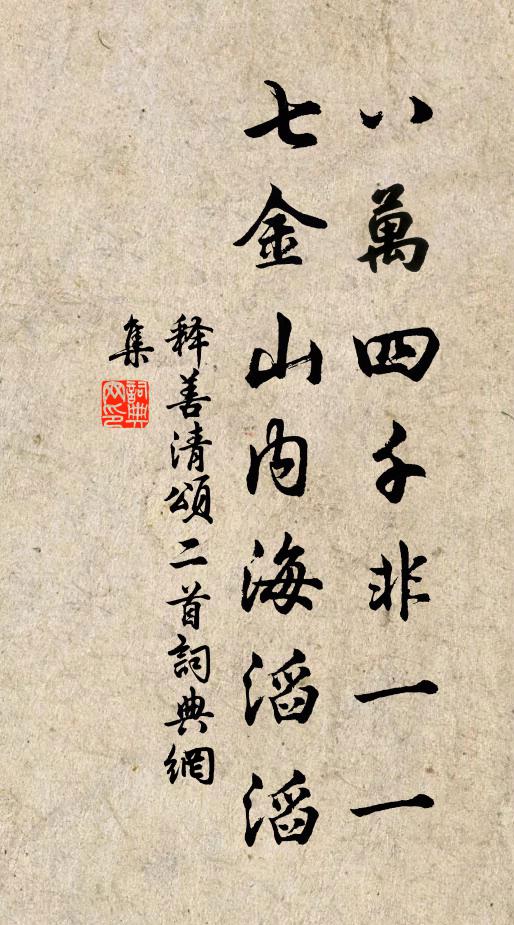 八萬四千非一一
七金山内海滔滔
释善清頌二首詞典網
集
詞典網印